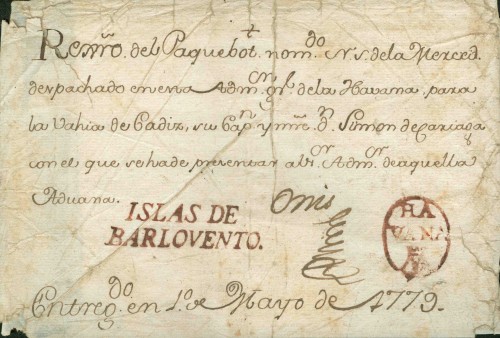 Rexro. del Paquebot. nomdo. Ns. de la Merced.
despachado en esta Admon. gl. de la Havana, para
la Vahia de Cadiz, su Capn. y mre. Dn. Simon de Careaga
con el que se ha de presentar al sr. Admor. de aquella
Aduana.
ISLAS DE
BARLOVENTO.
HA
VANA
Entregdo. en 1o. de Mayo de 1779.